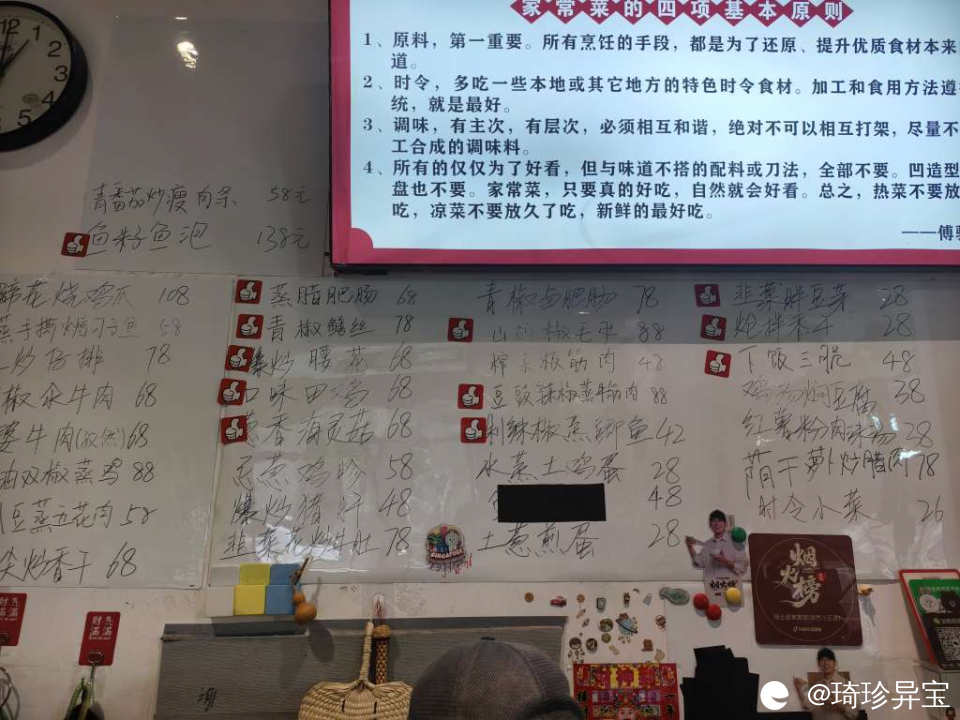 家常菜的四项基本原则
1、原料，第一重要。所有烹饪的手段，都是为了还原、提升优质食材本来
道。
2、时令，多吃一些本地或其它地方的特色时令食材。加工和食用方法遵
统，就是最好。
3、调味，有主次，有层次，必须相互和谐，绝对不可以相互打架，尽量不
工合成的调味料。
4、所有的仅仅为了好看，但与味道不搭的配料或刀法，全部不要。凹造型
盘也不要。家常菜，只要真的好吃，自然就会好看。总之，热菜不要放
吃，凉菜不要放久了吃，新鲜的最好吃。
——傅
12
1
2
3
4
5
青番茄炒瘦肉条 58元
鱼籽鱼泡 138元
蹄花烧鸡爪 108
58
炒仔排 78
椒汆牛肉 68
牛肉 68
油双椒蒸鸡 88
豆蒸五花肉 58
尖炒香干 68
蒸腊肥肠 68
青椒鳝丝 78
爆炒腰花 68
口味田鸡 68
葱香海灵菇 68
葱鸡 58
爆炒猪肝 48
韭菜花炒牛肚 78
青椒 肥肠 78
山 椒 88
辣椒筋肉 48
豆豉辣椒蒸腊肉 88
剁辣椒蒸鲫鱼 42
水蒸土鸡蛋 28
48
土葱煎蛋 28
韭菜拌豆芽 28
炝拌木耳 28
下饭三脆 48
鸡汤焖豆腐 38
红薯粉肉沫汤 28
萝卜炒腊肉 78
时令小菜 26
SINGAPORE
烟火榜
@琦珍异宝